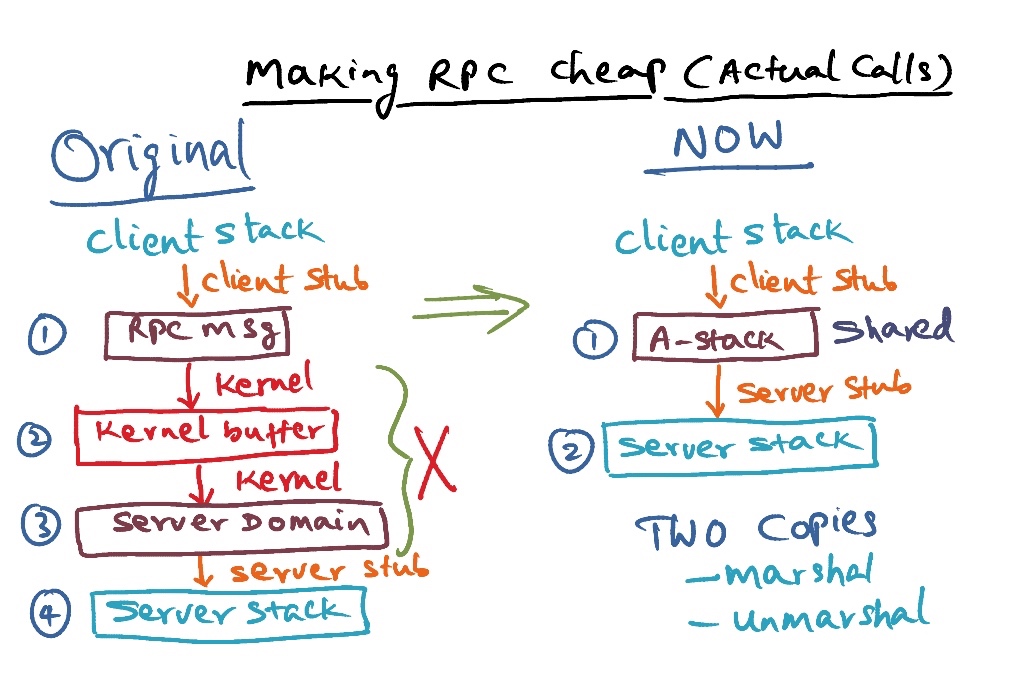 Making RPC cheap (Actual Calls)
Original
client stack
client stub
① RPC msg
Kernel
② Kernel buffer
Kernel
③ Server Domain
server stub
④ Server Stack
X
NOW
client stack
client stub
① A-stack shared
server stub
② Server stack
TWO Copies
- marshal
- unmarshal